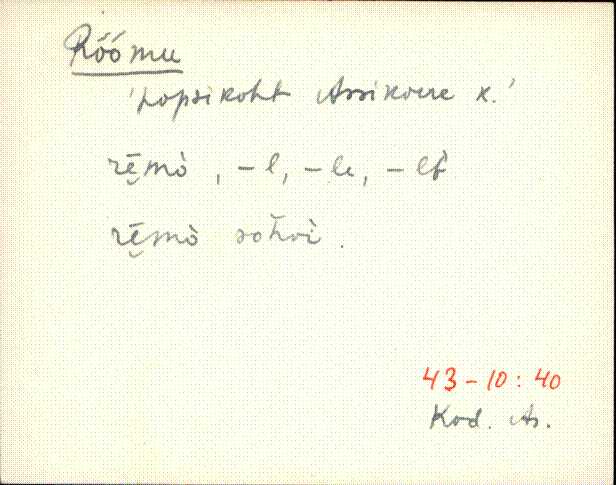 Rõõmu
'popsikoht Assikvere k.'
rē̮mò, -l, -le, -lt
rē̮mò sōhvì.
43-10:40
Kod. As.